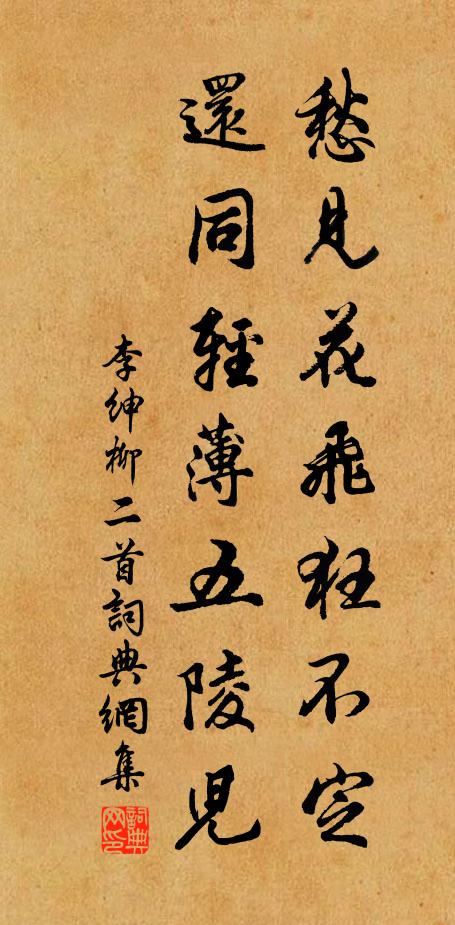 愁見花飛狂不定
還同輕薄五陵兒
李紳柳二首詞典網集
詞典网印